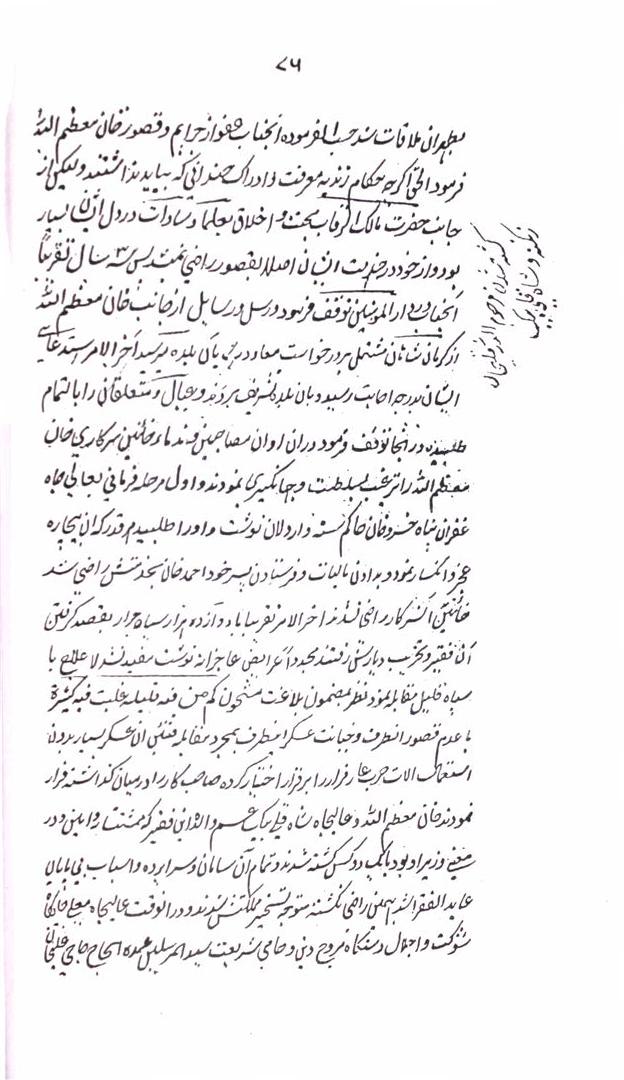 ۷۶
ملاقات شد حسب الفرموده آنجناب عفو از جرایم و قصور خان معظم الله
فرمود الحق اگرچه حکام زندیه معرفت و ادراک چندانی که بباید نداشتند ولیکن از
جانب حضرت مالک الرقاب محبت و اخلاق بعلما و سادات در دل ایشان بسیار
بود و از خود در خدمت ایشان اصلا بقصور راضی نمیشدند پس سه سال تقریبا
آنجناب در دار المومنین توقف فرمود و رسل و رسایل از جانب خان معظم الله
از کرمان شاهان مشتمل بر درخواست معاودت بآن بلده میرسید آخر الامر استدعای
ایشان بدرجه اجابت رسید و بآن بلده تشریف بردند و عیال و متعلقان را بالتمام
طلبیده در آنجا توقف فرمود در آن اوان مصاحبین و ندماء خائنین سرکاری خان
معظم الله را ترغیب بسلطنت و جهانگیری نمودند و اول مرحله فرمانی بعالی جاه
غفران پناه خسرو خان حاکم سنه و اردلان نوشت و او را طلبید هر قدر که آن بیچاره
عجز و انکسار نمود و بدادن مالیات و فرستادن پسر خود احمد خان بخدمتش راضی شد
خائنین آن سرکار راضی نشدند آخر الامر تقریبا با دوازده هزار سپاه جرار بقصد گرفتن
آن فقیر و تخریب دیارش رفتند مجددا عرایض عاجزانه نوشت مفید نشد لا علاج با
سپاه قلیل مقابله نمود نظر بمضمون بلاغت مشحون کم من فئة قلیله غلبت فئة کثیرة
با عدم قصور انطرف و خیانت عسکر اینطرف بمجرد مقابله فئتین آن عسکر بسیار بدون
استعمال الات حرب عار فرار را بر قرار اختیار کرده صاحب کار را در میان گذاشته فرار
نمودند خان معظم الله و عالیجاه شاه قلی بیک عم والد این فقیر که
معنی وزیر او بود با یکی دو کس کشته شدند و تمام آن سامان و سراپرده و اسباب بی پایان
عاید الفقرا شد بهمین راضی نگشته متوجه تسخیر مملکتش شدند و در آنوقت عالیجاه معلی جایگاه
شوکت و اجلال دستگاه مروج دین و حامی شریعت سید المرسلین عمدة الحاج حاجی علیخان
کشته شدن مرحوم الله قلیخان
زنگنه و شاه قلی بیک